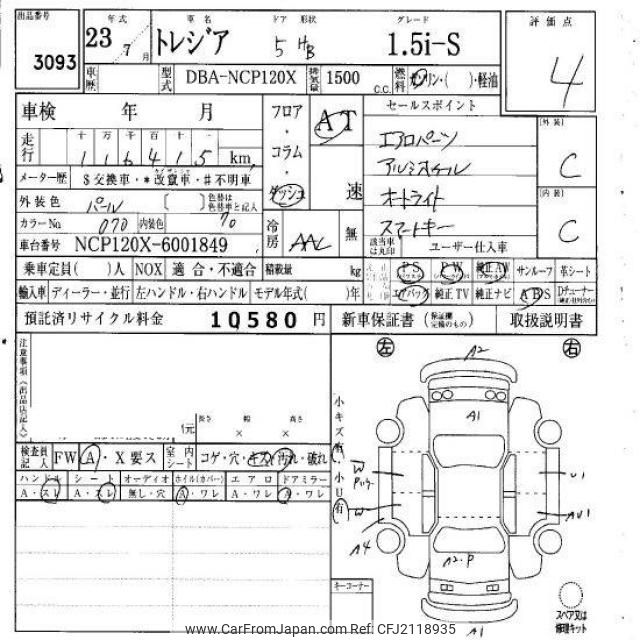 出品番号 年式 車名 ドア 形状 グレード 評価点
3093 23 7月 トレジア 5 HB 1.5i-S 4
車歴 型式 DBA-NCP120X 排気量 1500 c.c. 燃料 ガソリン・( )・軽油
車検 年 月 フロア・コラム・ダッシュ AT 速 セールスポイント
走行 十 万 千 百 十 一
1 1 6 4 1 5 km
エアロパーツ
アルミホイール
オートライト
スマートキー
[外装] C
[内装] C
メーター歴 $交換車・*改竄車・#不明車
外装色 パール [ ] 色替は色替車と記入
カラーNo 070 内装色 70 冷房 AAC 無
該当車は丸印 ユーザー仕入車
車台番号 NCP120X-6001849
乗車定員( )人 NOX 適合・不適合 積載量 kg PS PW 純正AW サンルーフ 革シート
輸入車 ディーラー・並行 左ハンドル・右ハンドル モデル年式( )年 エアバック 純正TV 純正ナビ ABS Dチューナー
預託済リサイクル料金 10580 円 新車保証書 (保証欄記載のもの) 取扱説明書
注意事項《出品店記入》
長さ 幅 高さ
× ×
検査員記入 FW A・X要ス 室内シート コゲ・穴・キズ・汚れ・破れ
ハンドル シート オーディオ ホイル(カバー) エアロ ドアミラー
A・スレ A・スレ 無し・穴 A・ワレ A・ワレ A・ワレ
小キズ有・小U有
左 右
A2
A1
W
U1
W
AU1
A4
A2.P
A1
キーコーナー
スペア又は修理キット
www.CarFromJapan.com Ref: CFJ2118935